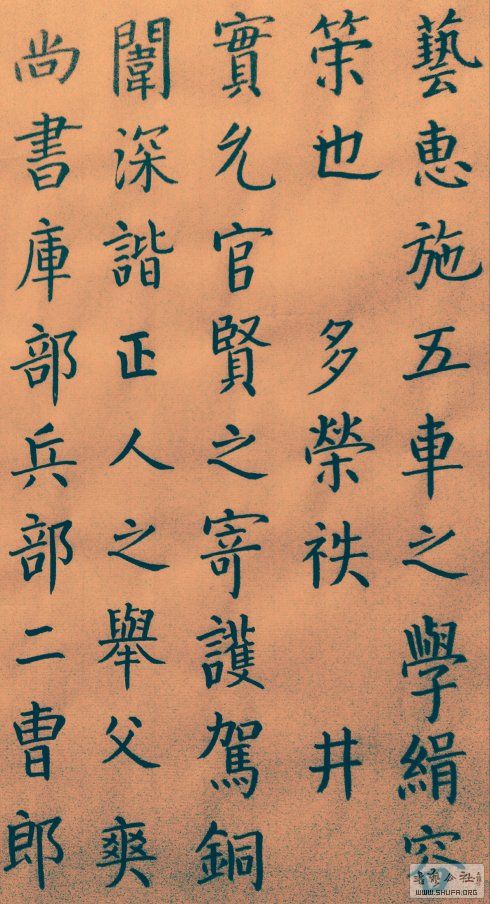 藝恵施五車之學緝
策也 多榮袟 井
實允官賢之寄護駕銅
闈深諧正人之舉父爽
尚書庫部兵部二曹郎
WWW.SHUFA.ORG